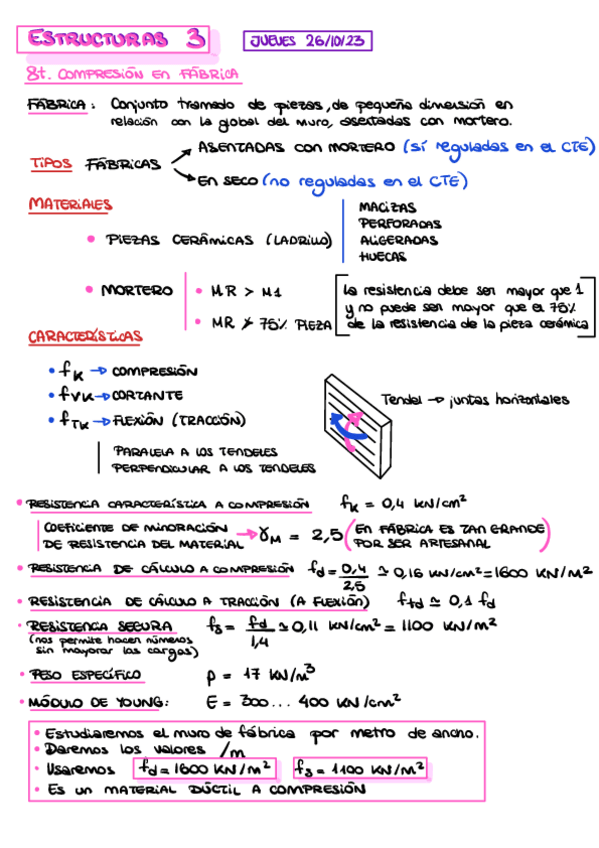 ESTRUCTURAS 3
JUEVES 26/10/23
8t. COMPRESIÓN EN FÁBRICA
FÁBRICA: Conjunto tramado de piezas, de pequeña dimensión en
relación con la global del muro, asentadas con mortero.
TIPOS FÁBRICAS
ASENTADAS CON MORTERO (SÍ reguladas en el CTE)
EN SECO (no reguladas en el CTE)
MATERIALES
• PIEZAS CERÁMICAS (LADRILLO)
MACIZAS
PERFORADAS
ALIGERADAS
HUECAS
• MORTERO
• MR > M1
• MR ≯ 75% PIEZA
la resistencia debe ser mayor que 1
y no puede ser mayor que el 75%
de la resistencia de la pieza cerámica
CARACTERÍSTICAS
• fK → COMPRESIÓN
• fVK → CORTANTE
• fTK → FLEXIÓN (TRACCIÓN)
PARALELA A LOS TENDELES
PERPENDICULAR A LOS TENDELES
Tendel → juntas horizontales
• RESISTENCIA CARACTERÍSTICA A COMPRESIÓN fK = 0,4 KN/cm²
COEFICIENTE DE MINORACIÓN
DE RESISTENCIA DEL MATERIAL → γM = 2,5
(EN FÁBRICA ES TAN GRANDE
POR SER ARTESANAL)
• RESISTENCIA DE CÁLCULO A COMPRESIÓN fd = 0,4/2,5 ≃ 0,16 KN/cm² = 1600 KN/M²
• RESISTENCIA DE CÁLCULO A TRACCIÓN (A FLEXIÓN) ftd ≃ 0,1 fd
• RESISTENCIA SEGURA fs = fd/1,4 ≃ 0,11 KN/cm² = 1100 KN/M²
(nos permite hacer números
sin mayorar las cargas)
• PESO ESPECÍFICO ρ = 17 KN/m³
• MÓDULO DE YOUNG: E = 300... 400 KN/cm²
• Estudiaremos el muro de fábrica por metro de ancho.
• Daremos los valores /m
• Usaremos fd = 1600 KN/m² fs = 1100 KN/M²
• Es UN MATERIAL DÚCTIL A COMPRESIÓN